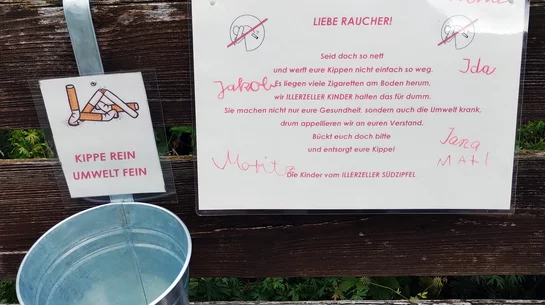 LIEBE RAUCHER!
Seid doch so nett
und werft eure Kippen nicht einfach so weg.
Ida
Jakob
Es liegen viele Zigaretten am Boden herum,
wir ILLERZELLER KINDER halten das für dumm.
Sie machen nicht nur eure Gesundheit, sondern auch die Umwelt krank,
drum appellieren wir an euren Verstand.
Bückt euch doch bitte
und entsorgt eure Kippe!
Jana
Moritz
Die Kinder vom ILLERZELLER SÜDZIPFEL
KIPPE REIN
UMWELT FEIN